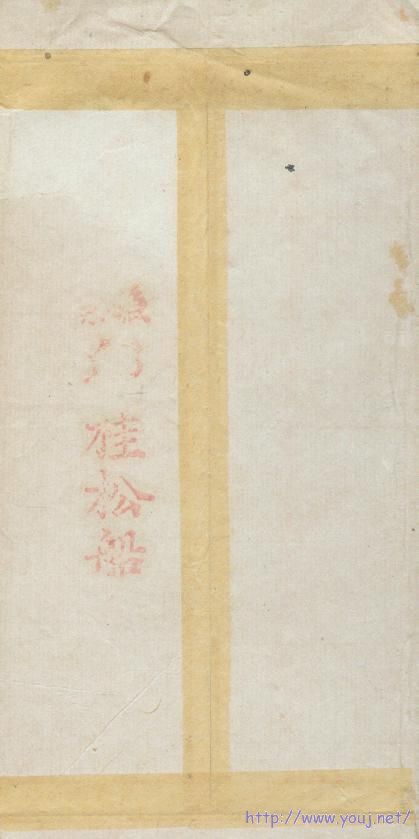 门
桂
松
船
http://www.youj.net/